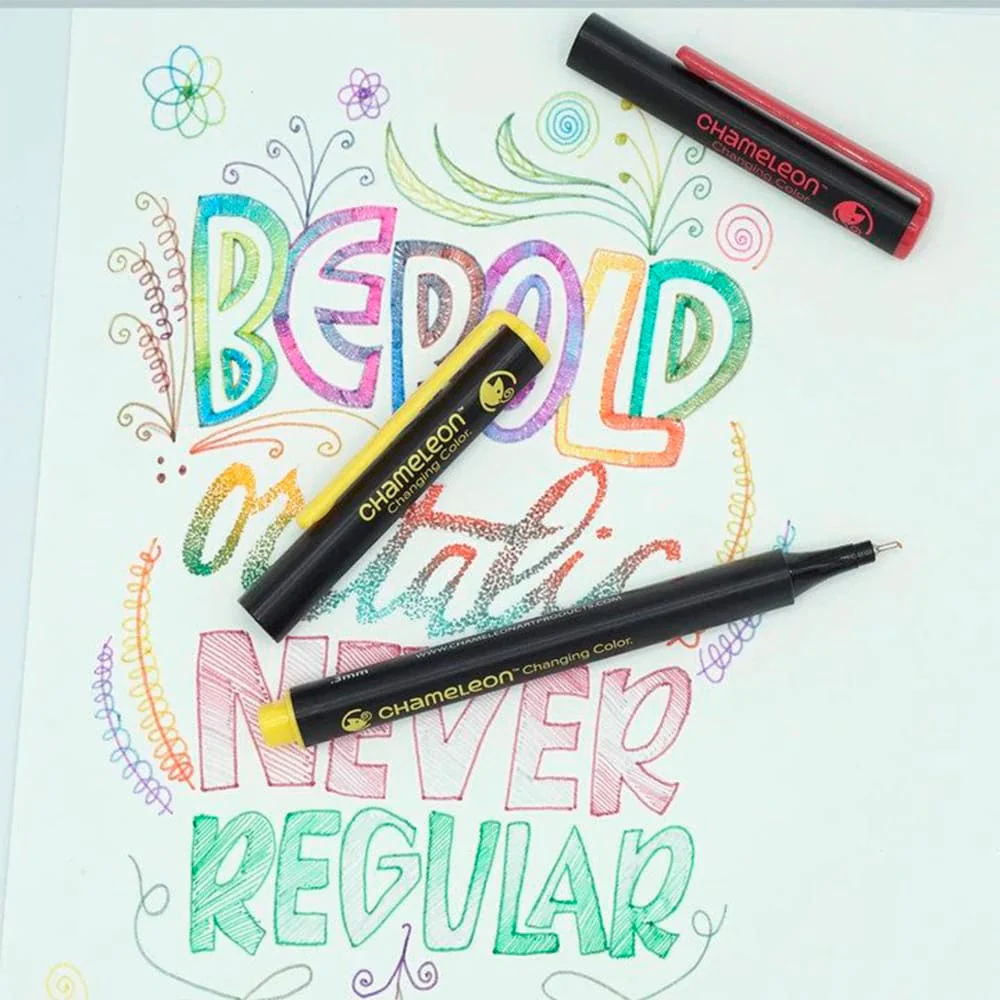 CHAMELEON™
Changing Color.
BE BOLD
CHAMELEON™
Changing Color.
or italic
WWW.CHAMELEONARTPRODUCTS.COM
.3mm
CHAMELEON™ Changing Color.
NEVER
REGULAR